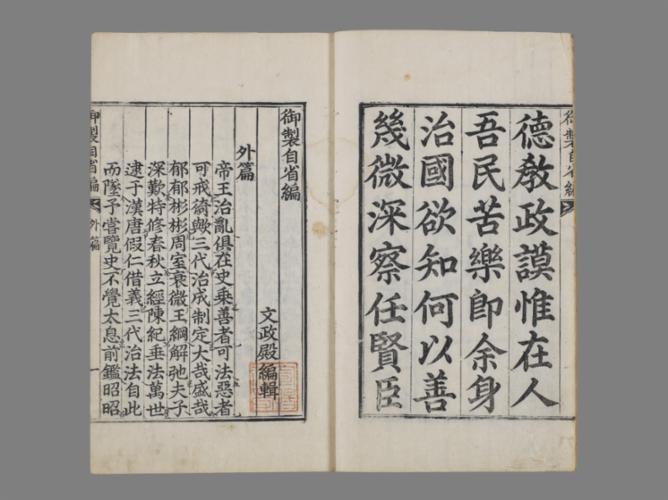 御製自省編
德教政謨惟在人
吾民苦樂卽余身
治國欲知何以善
幾微深察任賢臣
御製自省編
文政殿編輯
外篇
帝王治亂俱在史乘善者可法惡者
可戒猗歟三代治成制定大哉盛哉
郁郁彬彬周室衰微王綱解弛夫子
深歎特修春秋立經陳紀垂法萬世
逮于漢唐假仁借義三代治法自此
而墜予嘗覽史不覺太息前鑑昭昭
御製自省編 外篇 一